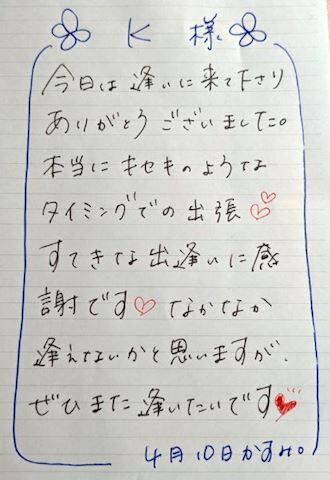 K 様
今日は逢いに来て下さり
ありがとうございました。
本当にキセキのような
タイミングでの出張
すてきな出逢いに感
謝です なかなか
逢えないかと思いますが、
ぜひまた逢いたいです
4月10日かすみ。